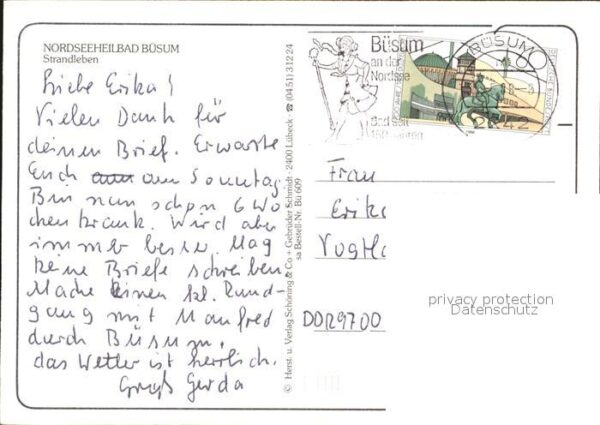 NORDSEEHEILBAD BÜSUM
Strandleben
Liebe Erika!
Vielen Dank für
deinen Brief. Erwarte
Euch am Sonntag.
Bin nun schon 6 Wo
chen krank. Wird aber
immer besser. Mag
keine Briefe schreiben
Mache einen kl. Rund-
gang mit Manfred
durch Büsum.
das Wetter ist herrlich.
Gruß Gerda
© Herst. u. Verlag Schöning & Co + Gebrüder Schmidt · 2400 Lübeck · ☎ (04 51) 3 12 24
sa Bestell-Nr. Bü 609
Büsum
an der
Nordsee
Bad seit
150 Jahren
BÜSUM
2242
Frau
Erika
Vogtl
DDR 9700
privacy protection
Datenschutz